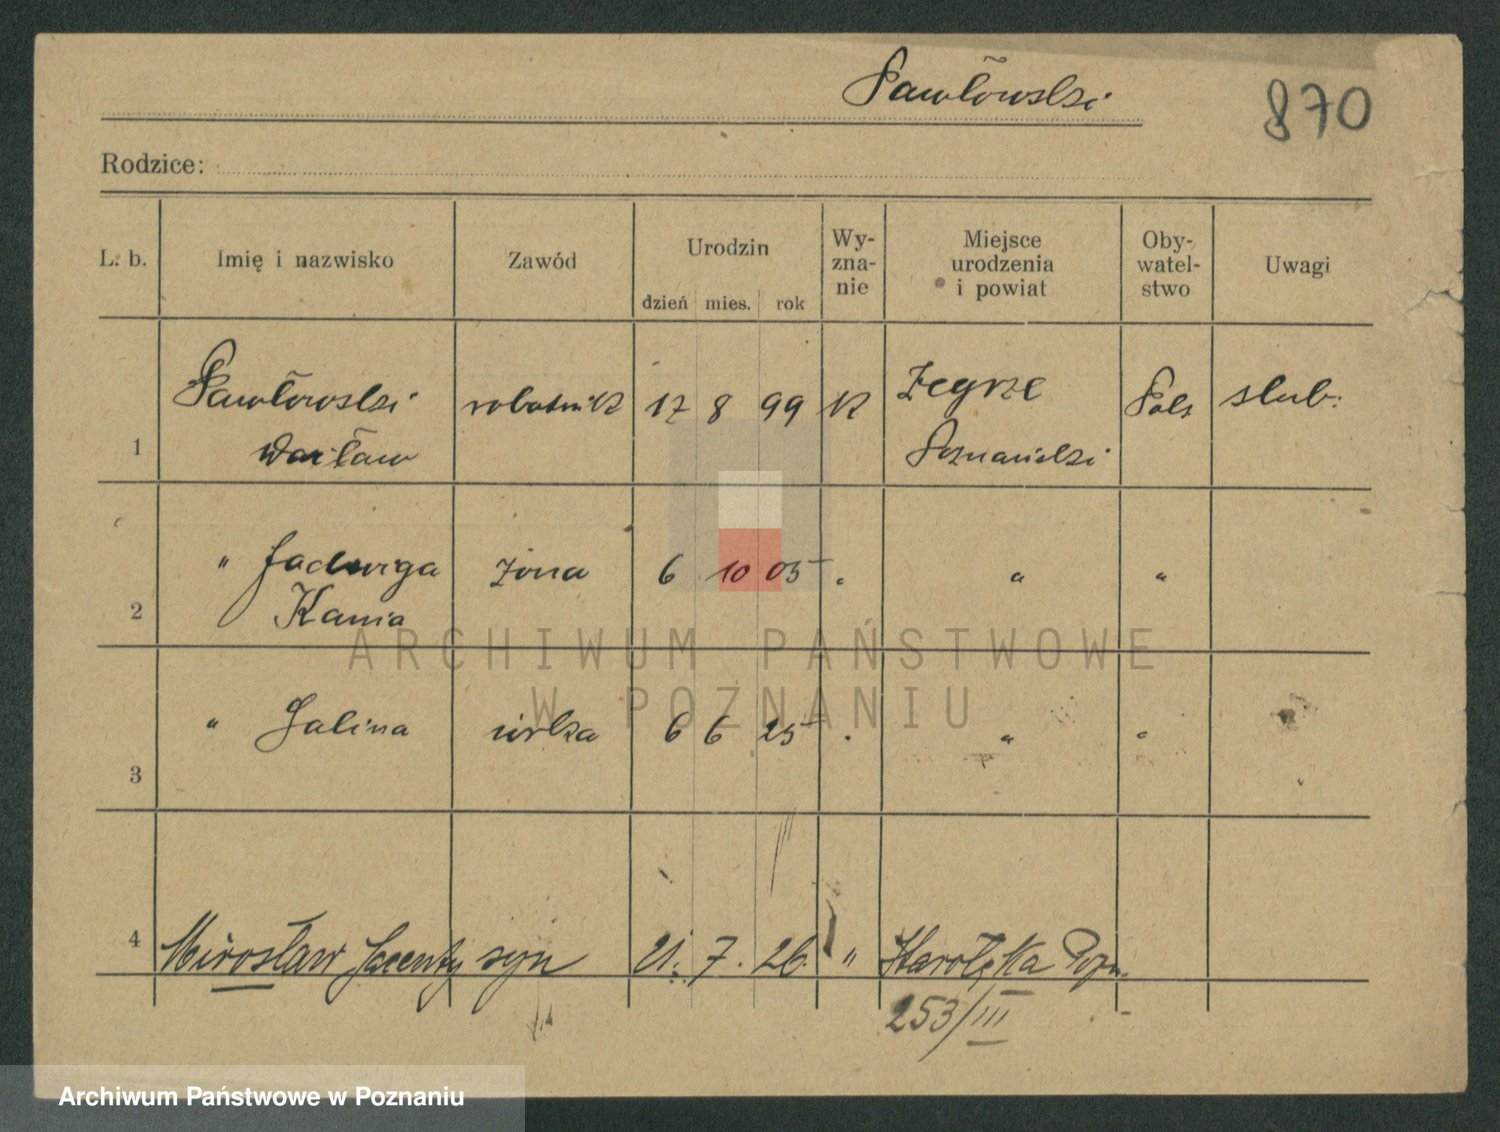 Pawłowski
870
Rodzice:
L. b. Imię i nazwisko Zawód Urodzin dzień mies. rok Wy-zna-nie Miejsce urodzenia i powiat Oby-watel-stwo Uwagi
1 Pawłowski robotnik 17 8 99 K Zegrze Pols slub.
Wacław Poznański
2 " Jadwiga żona 6 10 05 " " "
Kania
3 " Halina córka 6 6 25 " " "
4 Mirosław Jacenty syn 21. 7. 26. " Starołęka Pozn.
253/III
ARCHIWUM PAŃSTWOWE
W POZNANIU
Archiwum Państwowe w Poznaniu